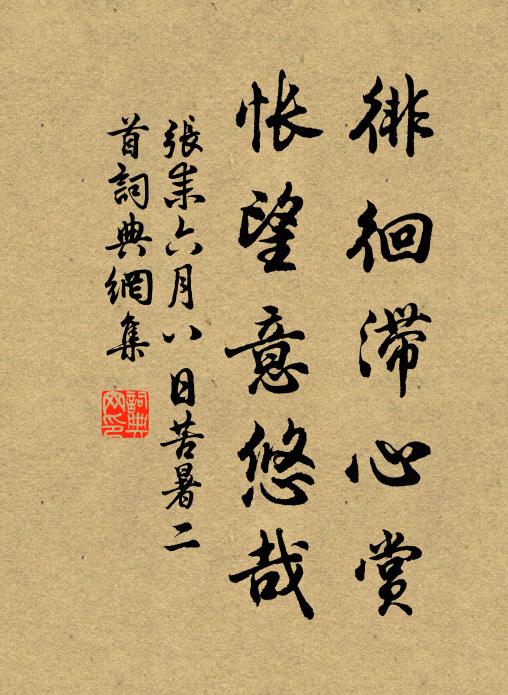 徘徊滯心賞
悵望意悠哉
張耒六月八日苦暑二
首詞典網集
詞典
网印